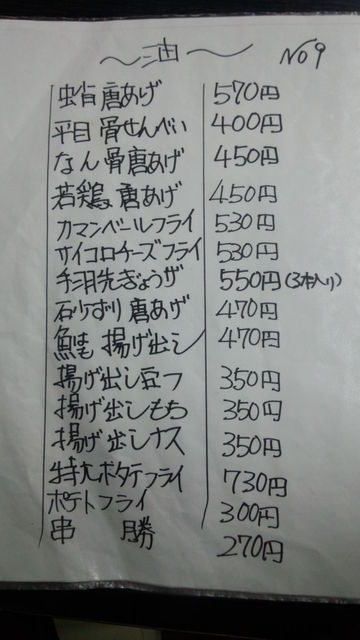 ～油～ No9
蛸唐あげ 570円
平目骨せんべい 400円
なん骨唐あげ 450円
若鶏唐あげ 450円
カマンベールフライ 530円
サイコロチーズフライ 530円
手羽先ぎょうザ 550円(3本入り)
砂ずり唐あげ 470円
鮭揚げ出し 470円
揚げ出し豆フ 350円
揚げ出しもち 350円
揚げ出しナス 350円
特大ホタテフライ 730円
ポテトフライ 300円
串勝 270円